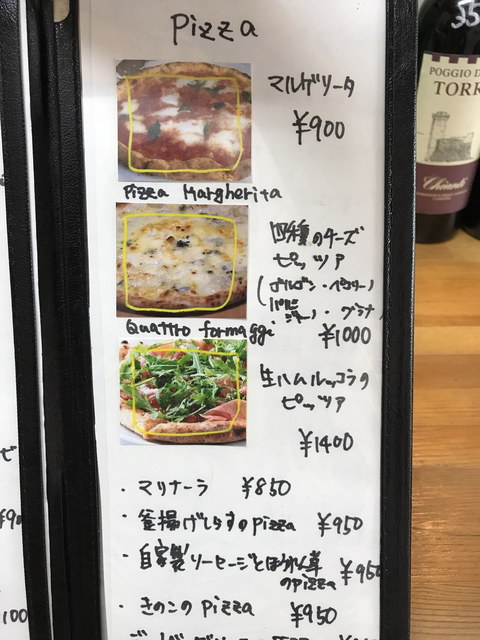 Pizza
マルゲリータ
¥900
Pizza Margherita
四種のチーズ
ピッツァ
Quattro formaggi
¥1000
生ハムルッコラの
ピッツァ
¥1400
・マリナーラ ¥850
・釜揚げしらすのpizza ¥950
・自家製ソーセージとほうれん草
のpizza ¥950
・きのこのpizza ¥950
POGGIO D
TORR
Chianti